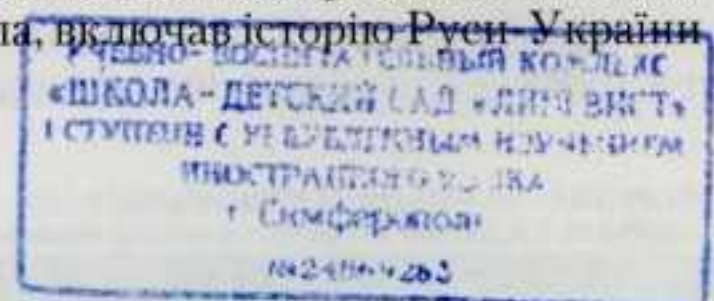 ла, включав історію Руси-України
УЧЕБНО-ВОСПИТАТЕЛЬНЫЙ КОМПЛЕКС
«ШКОЛА-ДЕТСКИЙ САД «ЛИНГВИСТ»
I СТУПЕНИ С УГЛУБЛЕННЫМ ИЗУЧЕНИЕМ
ИНОСТРАННОГО ЯЗЫКА
г. Симферополя